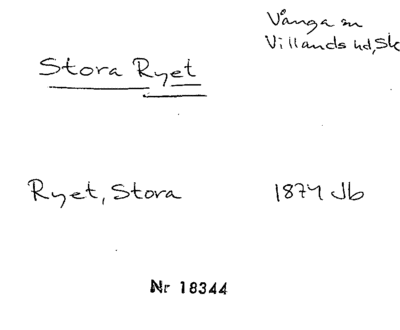 Vånga sn
Villands hd, Sk
Stora Ryet
Ryet, Stora 1874 Jb
Nr 18344